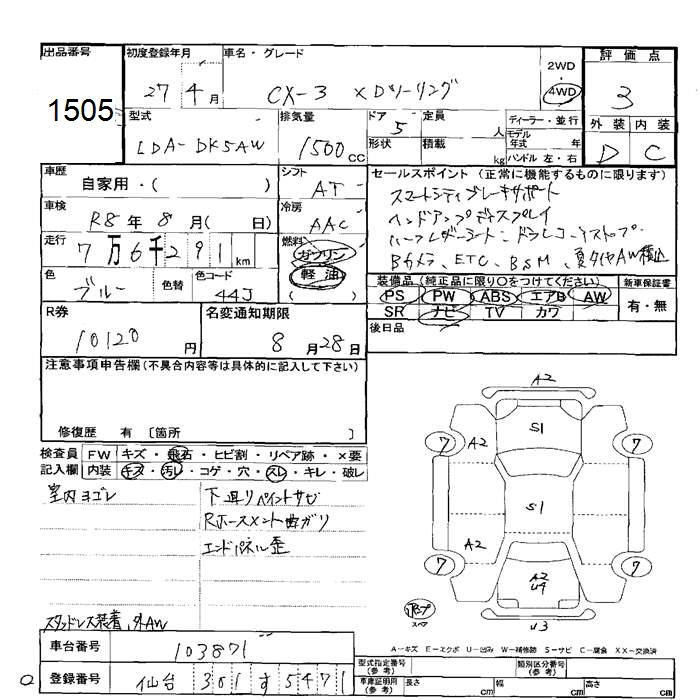 出品番号
1505
初度登録年月
27 4 月
車名・グレード
CX-3 XDツーリング
2WD
4WD
評価点
3
外装 内装
D C
型式
LDA-DK5AW
排気量
1500 cc
ドア
5
形状
定員
人
積載
kg
ディーラー・並行
モデル
年式 年
ハンドル 左・右
車歴
自家用・( )
シフト
AT
車検
R8 年 8 月( 日)
冷房
AAC
走行
7万6千291 km
燃料
ガソリン
軽油
( )
色
ブルー
色替
色コード
44J
セールスポイント (正常に機能するものに限ります)
スマートシティブレーキサポート
ヘッドアップディスプレイ
ハーフレザーシート、ドラレコ、iストップ
Bカメラ、ETC、BSM、夏タイヤAW積込
装備品(純正品に限り○をつけてください)
PS PW ABS エアB AW
SR ナビ TV カワ
新車保証書
有・無
後日品
R券
10120 円
名変通知期限
8 月 28 日
注意事項申告欄(不具合内容等は具体的に記入して下さい)
修復歴 有 〔箇所 〕
検査員
記入欄
FW キズ・飛石・ヒビ割・リペア跡・×要
内装 キズ・汚レ・コゲ・穴・スレ・キレ・破レ
室内ヨゴレ
下廻りペイントサビ
Rホースメント曲ガリ
エンドパネル歪
スタッドレス装着、外AW
A2
S1
7 A2 7
S1
A2
7 A2 7
U4
U3
A-キズ E-エクボ U-凹み W-補修跡 S-サビ C-腐食 XX-交換済
車台番号
103871
登録番号
仙台 301 す 5471
型式指定番号
(参考)
類別区分番号
(参考)
車庫証明用
(参考)
長さ cm 幅 cm 高さ cm